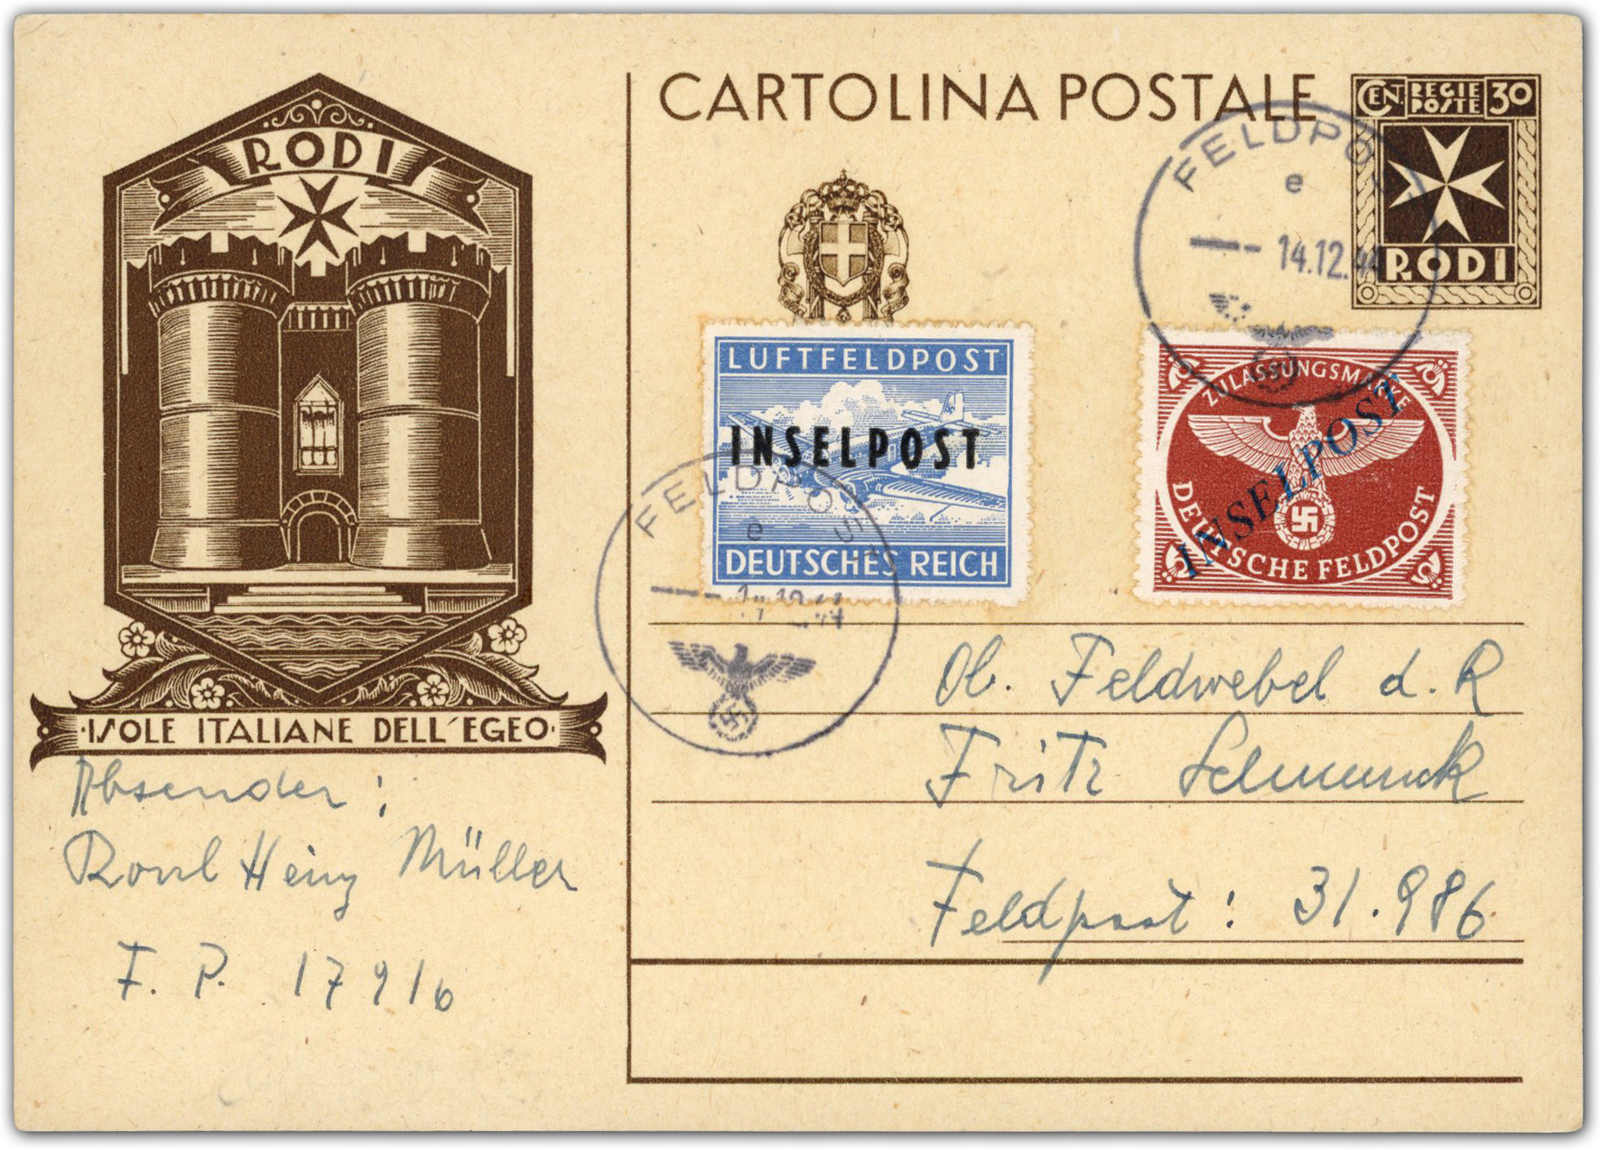 RODI
·ISOLE ITALIANE DELL'EGEO·
Absender:
Heinz Müller
F. P. 17916
CARTOLINA POSTALE
CEN REGIE POSTE 30
RODI
FELDPO
e
14.12.44
LUFTFELDPOST
INSELPOST
DEUTSCHES REICH
FELDPOST
e
ZULASSUNGSMARKE
INSELPOST
DEUTSCHE FELDPOST
Ob. Feldwebel d. R
Fritz
Feldpost: 31.986